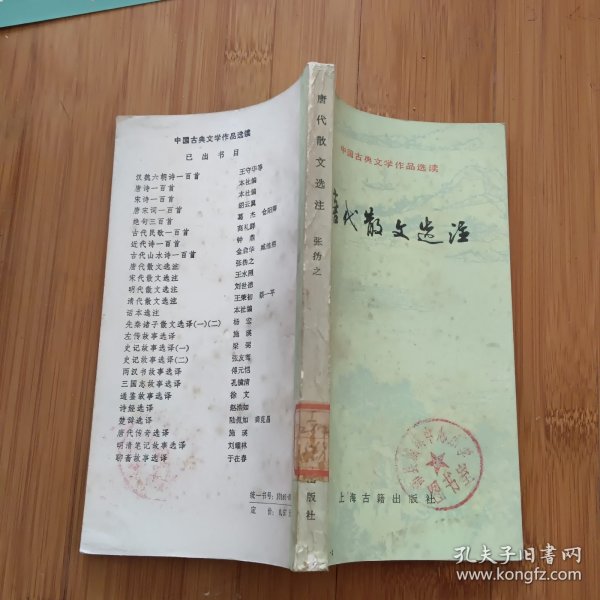 中国古典文学作品选读
已出书目
汉魏六朝诗一百首 王守华等
唐诗一百首 本社编
宋诗一百首 本社编
唐宋词一百首 胡云翼
绝句三百首 葛杰 仓阳卿
古代民歌一百首 商礼群
近代诗一百首 钟鼎
古代山水诗一百首 金启华 臧维熙
唐代散文选注 张㧑之
宋代散文选注 王水照
明代散文选注 刘世德
清代散文选注 王荣初 蔡一平
话本选注 本社编
先秦诸子散文选译(一)(二) 杨宏
左传故事选译 施瑛
史记故事选译(一) 梁弼
史记故事选译(二) 张友鸾
两汉书故事选译 傅元恺
三国志故事选译 孔镜清
通鉴故事选译 徐文
诗经选译 赵浩如
楚辞选译 陆侃如
唐代传奇选译 施瑛
明清笔记故事选译 刘耀林
聊斋故事选译 于在春
统一书号:
定价:
唐代散文选注 张㧑之
出版社
中国古典文学作品选读
唐代散文选注
上海古籍出版社
孔夫子旧书网
www.kongfz.com